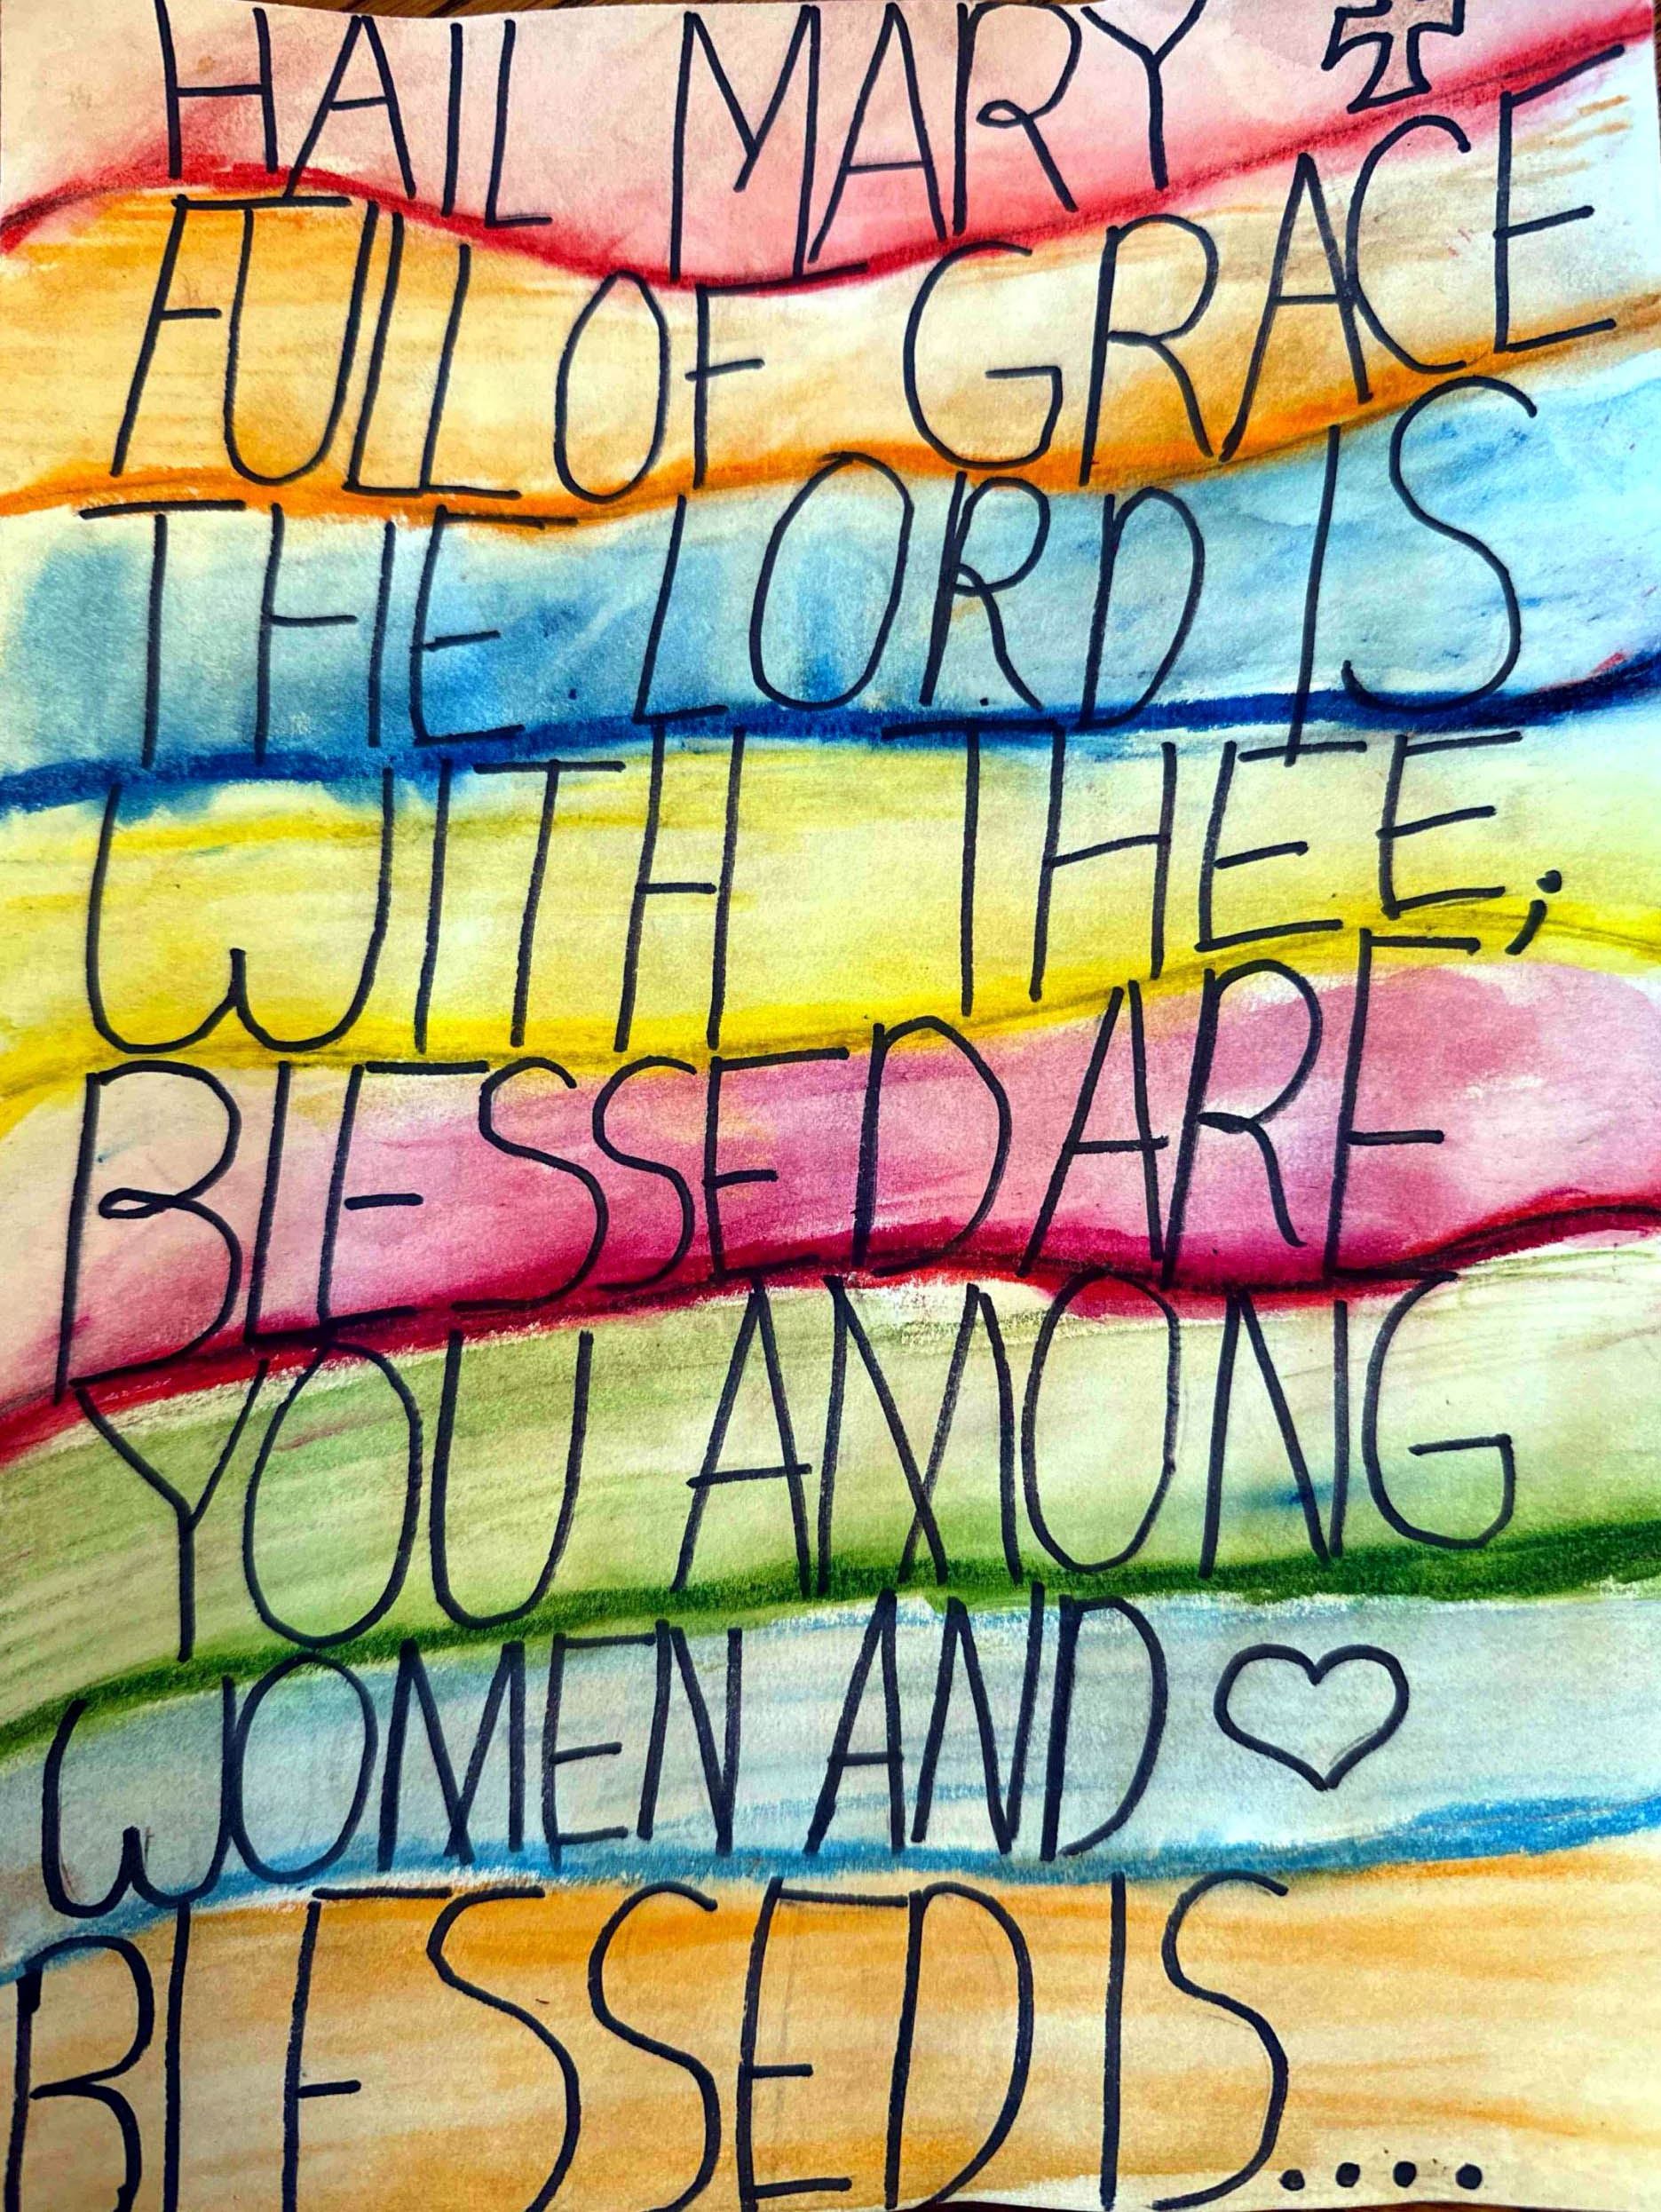 HAIL MARY
FULL OF GRACE
THE LORD IS
WITH THEE;
BLESSED ARE
YOU AMONG
WOMEN AND
BLESSED IS....